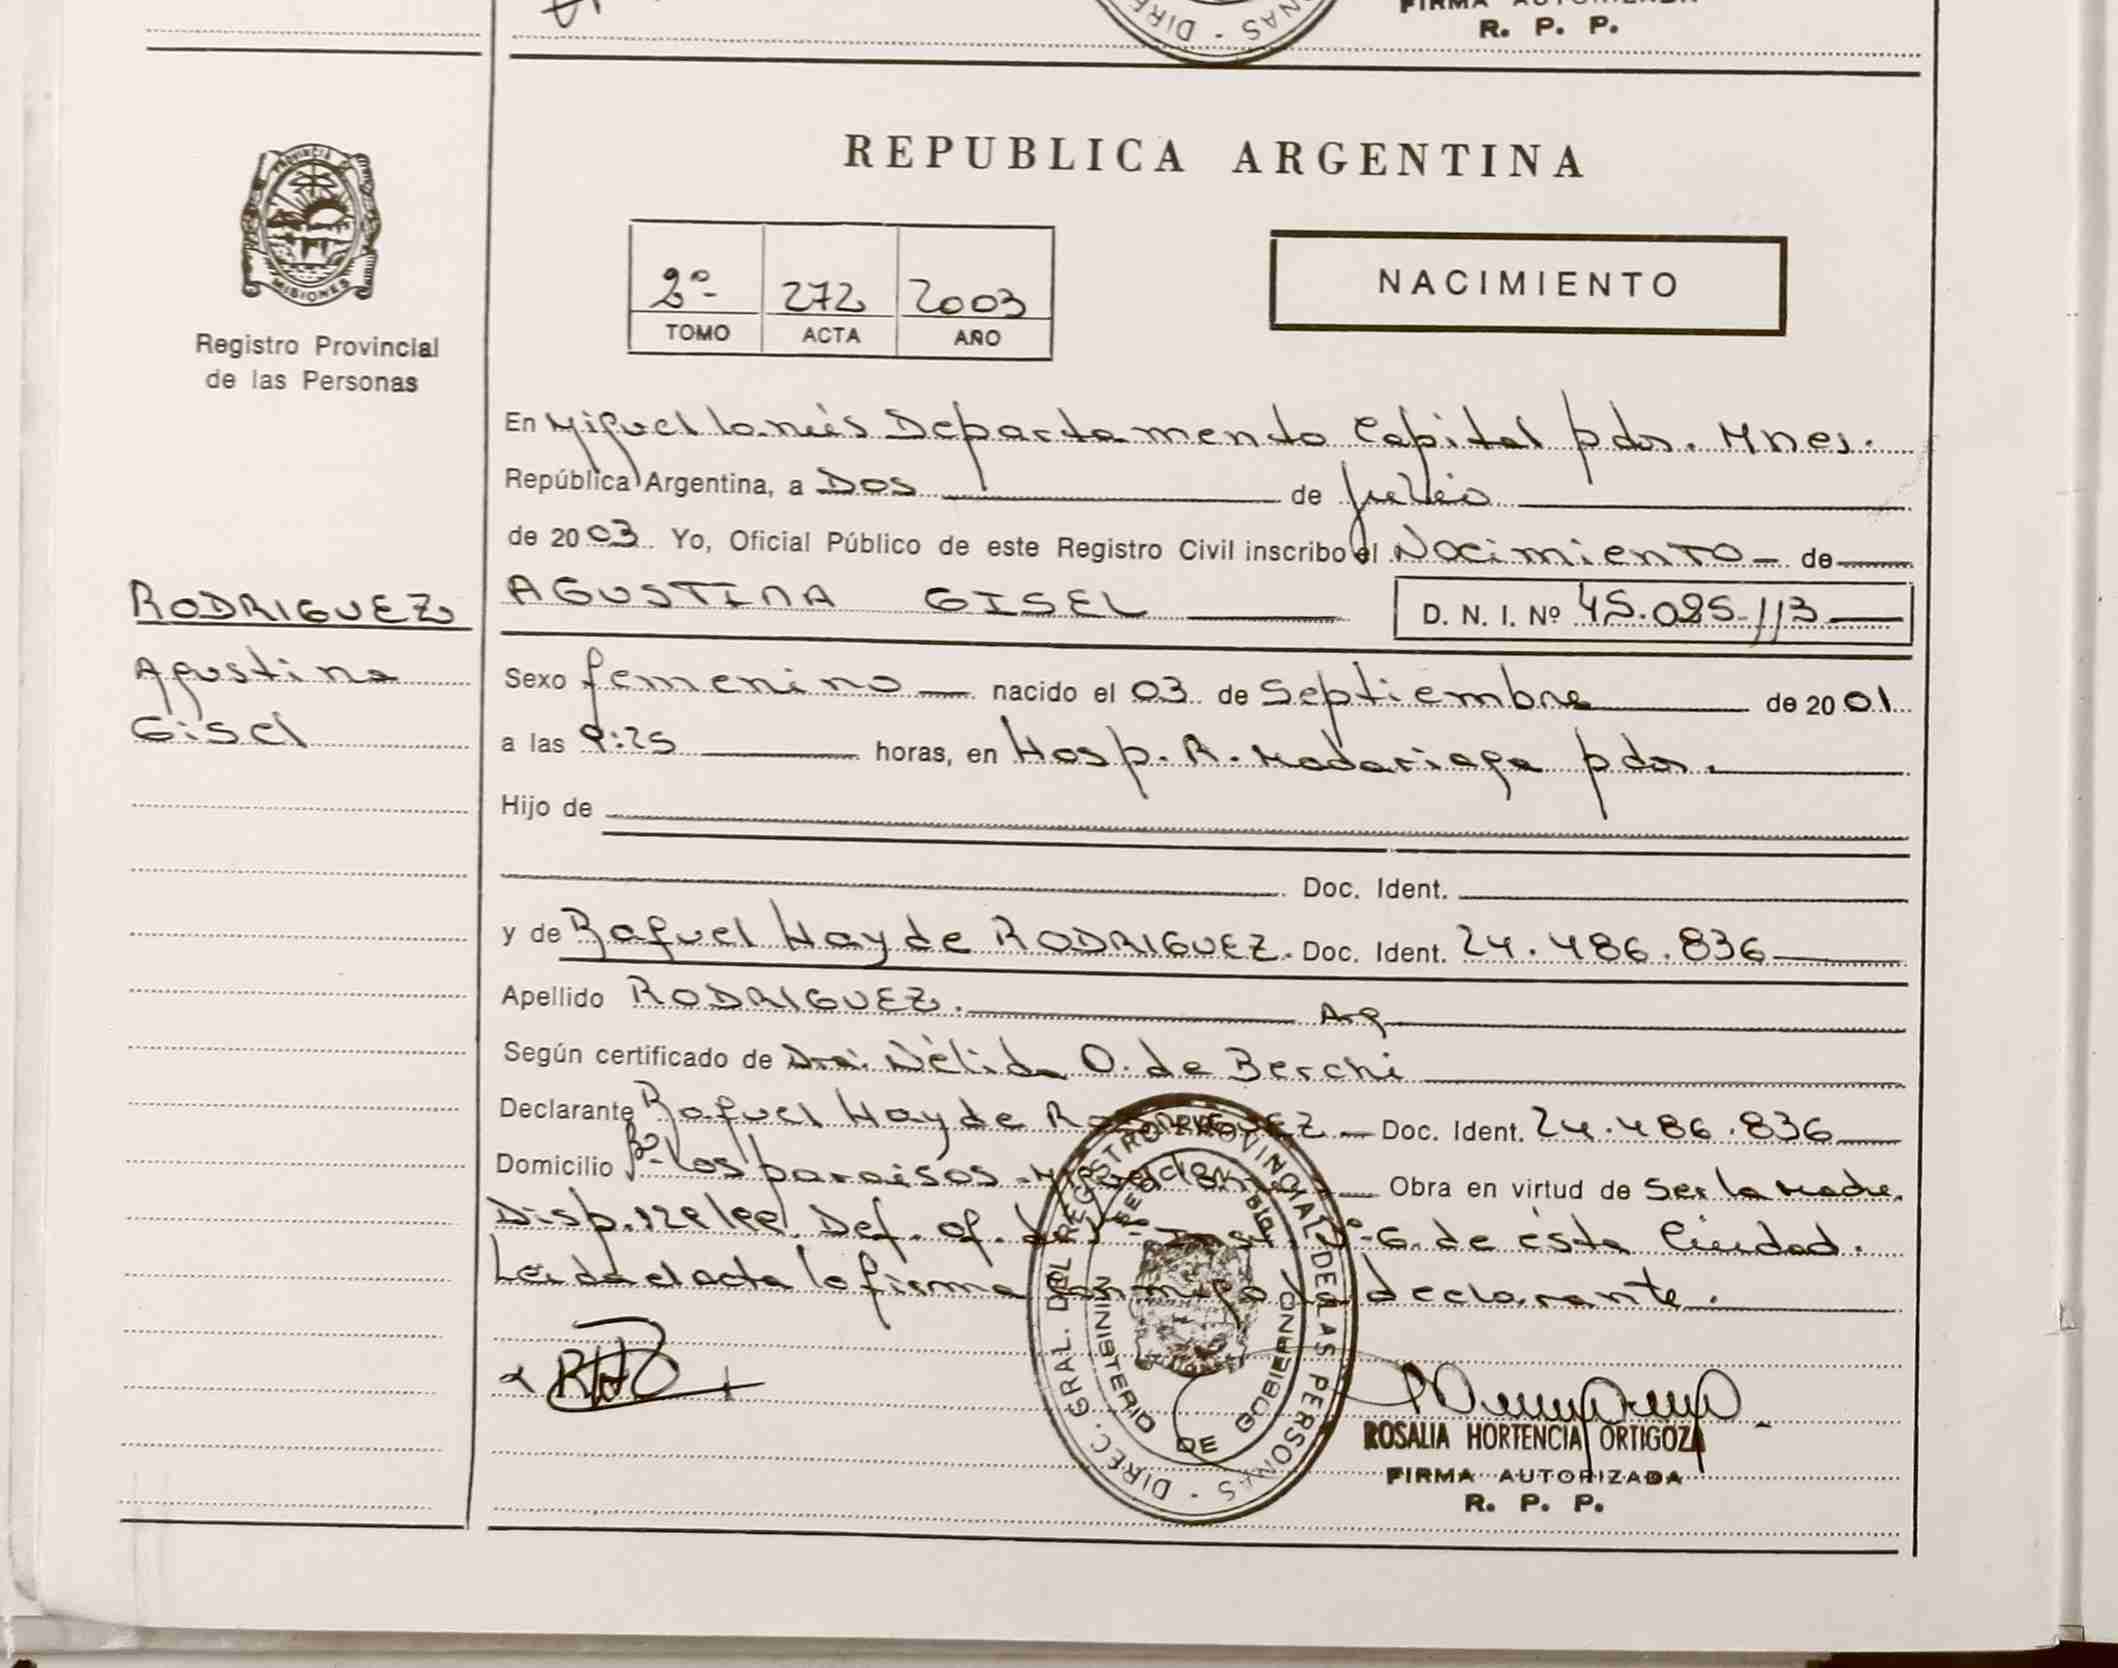 FIRMA AUTORIZADA
R. P. P.
REPUBLICA ARGENTINA
PROVINCIA DE
MISIONES
Registro Provincial
de las Personas
2º 272 2003
TOMO ACTA AÑO
NACIMIENTO
En Miguel Lanús Departamento Capital pdas. Mnes.
República Argentina, a Dos de Julio
de 2003 Yo, Oficial Público de este Registro Civil inscribo el Nacimiento de
RODRIGUEZ
Agustina
Gisel
AGUSTINA GISEL D. N. I. Nº 45.025.113
Sexo femenino nacido el 03 de Septiembre de 2001
a las 9:25 horas, en Hosp. R. Madariaga pdas.
Hijo de
Doc. Ident.
y de Raquel Hayde RODRIGUEZ. Doc. Ident. 24.486.836
Apellido RODRIGUEZ. Arg
Según certificado de Dra. Nélida O. de Berchi
Declarante Raquel Hayde RODRIGUEZ Doc. Ident. 24.486.836
Domicilio Bº Los paraisos Obra en virtud de Ser la Madre.
Disp. Def. of. de Inst. Nº 6. de ésta Ciudad.
Leida el acta la firma conmigo la declarante.
DIREC. GRAL. DEL REGISTRO PROVINCIAL DE LAS PERSONAS
MINISTERIO DE GOBIERNO
ROSALIA HORTENCIA ORTIGOZA
FIRMA AUTORIZADA
R. P. P.